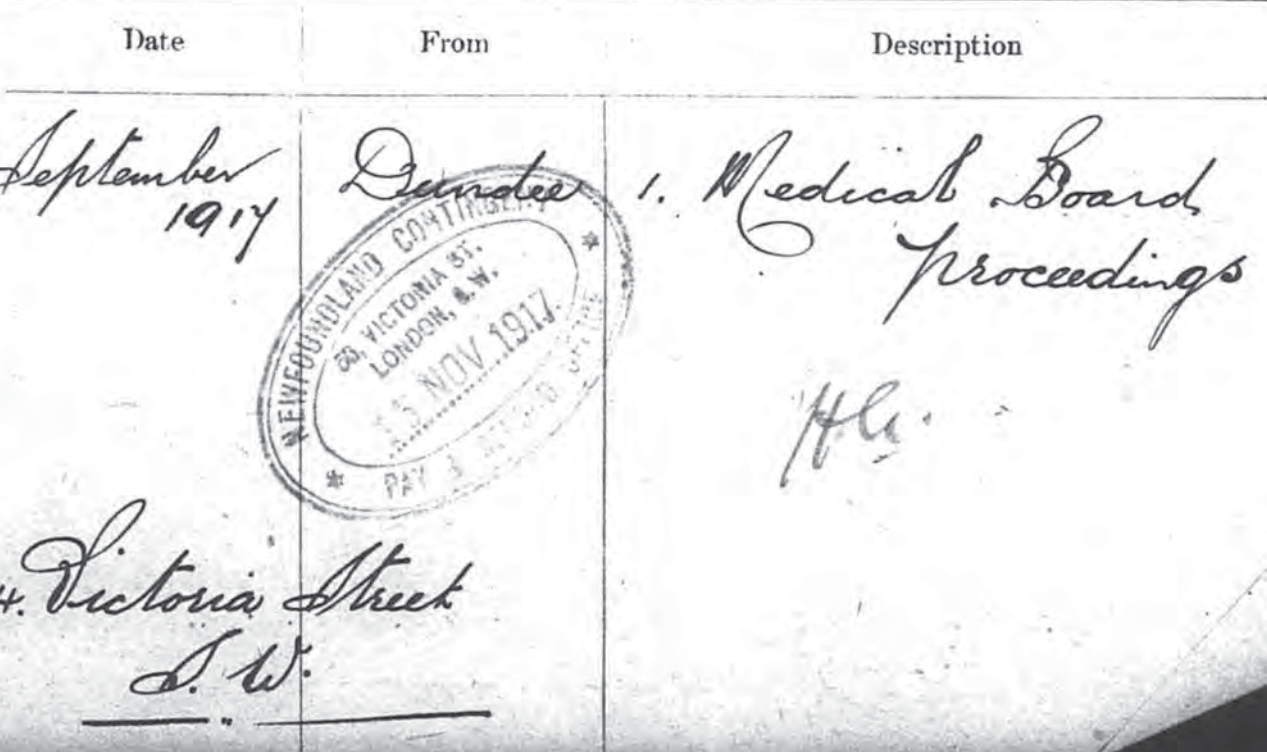 Date From Description
September Dundee 1. Medical Board
1917 proceedings
NEWFOUNDLAND CONTINGENT
VICTORIA ST.
LONDON, S.W.
NOV. 1917.
PAY & RECORD OFFICE
Victoria Street
S. W.